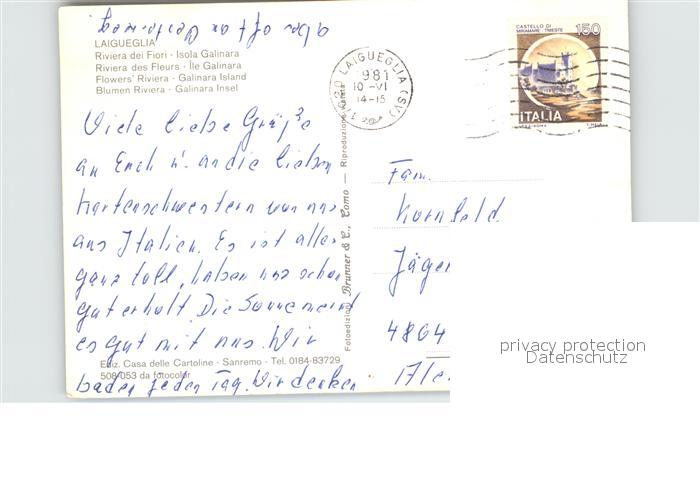 LAIGUEGLIA
Riviera dei Fiori - Isola Galinara
Riviera des Fleurs - Île Galinara
Flowers' Riviera - Galinara Island
Blumen Riviera - Galinara Insel
Viele liebe Grüße
an Euch u. an die lieben
Kartenschwestern von uns
aus Italien. Es ist alles
ganz toll, haben uns schon
gut erholt. Die Sonne meint
es gut mit uns. Wir
baden jeden Tag. Wir denken
aber oft an
Ediz. Casa delle Cartoline - Sanremo - Tel. 0184-83729
508-053 da fotocolor
Fotoedizioni Brunner & C., Como — Riproduzione vietata
LAIGUEGLIA (SV)
1981
10-VI
14-15
CASTELLO DI
MIRAMARE - TRIESTE
150
ITALIA
Fam.
Kornfeld
Jäger
4864
privacy protection
Datenschutz